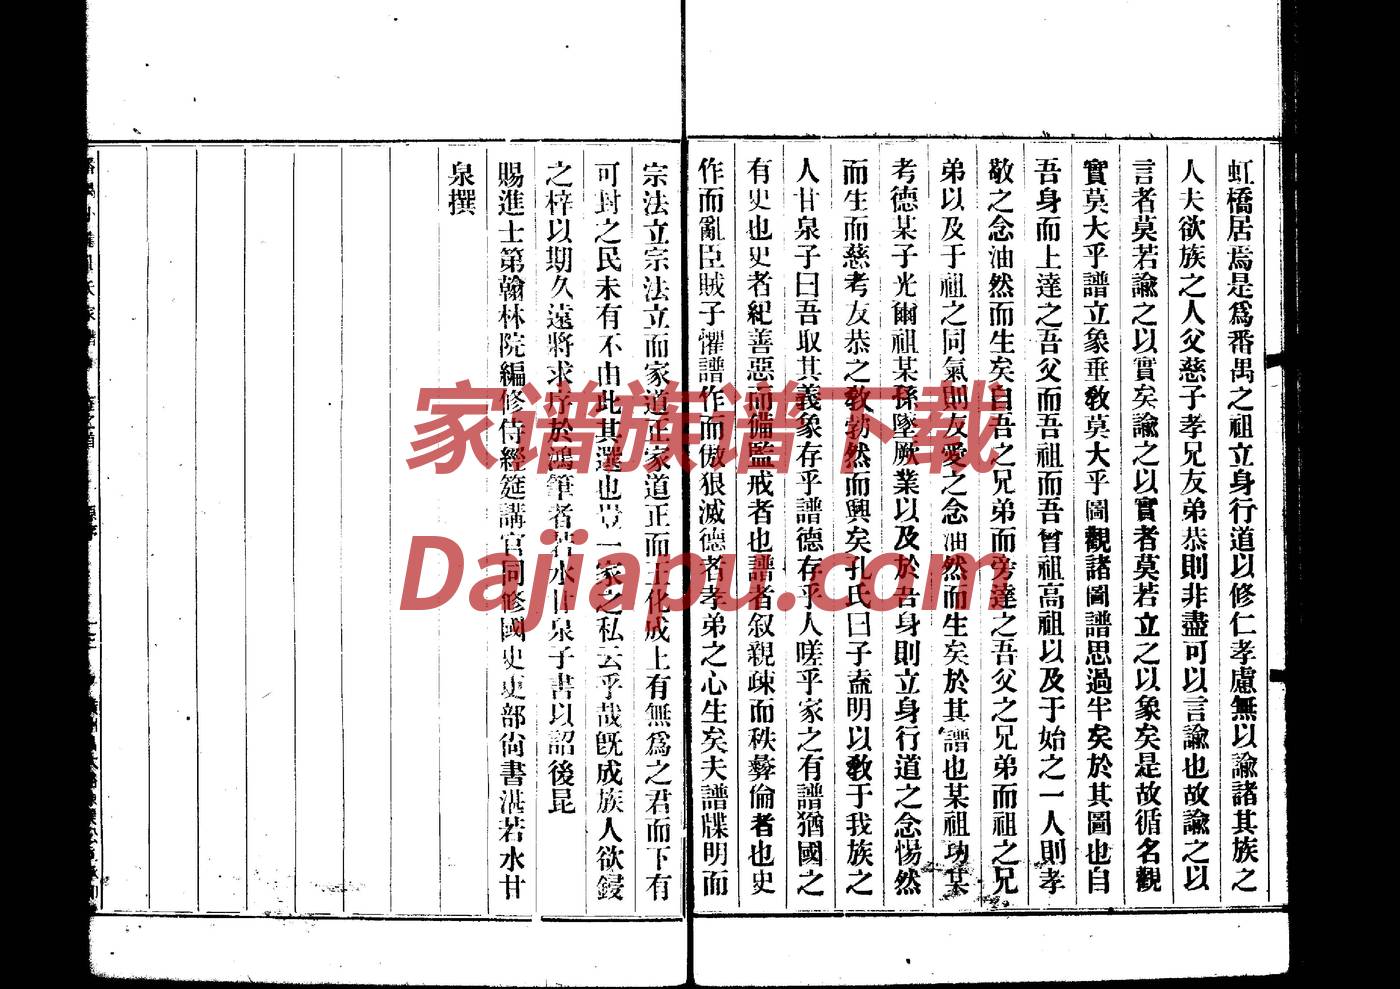 虹橋居焉是爲番禺之祖立身行道以修仁孝慮無以諭諸其族之
人夫欲族之人父慈子孝兄友弟恭則非盡可以言諭也故諭之以
言者莫若諭之以實矣諭之以實者莫若立之以象矣是故循名觀
實莫大乎譜立象垂教莫大乎圖觀諸圖譜思過半矣於其圖也自
吾身而上達之吾父而吾祖而吾曾祖高祖以及于始之一人則孝
敬之念油然而生矣自吾之兄弟而旁達之吾父之兄弟而祖之兄
弟以及于祖之同氣則友愛之念油然而生矣於其譜也某祖功某
考德某子光爾祖某孫墜厥業以及於吾身則立身行道之念惕然
而生而慈考友恭之敎勃然而興矣孔氏曰子盍明以敎于我族之
人甘泉子曰吾取其義象存乎譜德存乎人嗟乎家之有譜猶國之
有史也史者紀善惡而備監戒者也譜者叙親疎而秩彝倫者也史
作而亂臣賊子懼譜作而傲狠滅德者孝弟之心生矣夫譜牒明而
宗法立宗法立而家道正家道正而王化成上有無爲之君而下有
可封之民未有不由此其選也豈一家之私云乎哉旣成族人欲鋟
之梓以期久遠將求序於鴻筆者若水甘泉子書以詔後昆
賜進士第翰林院編修侍經筵講官同修國史吏部尙書湛若水甘
泉撰
家谱族谱下载
Dajiapu.com